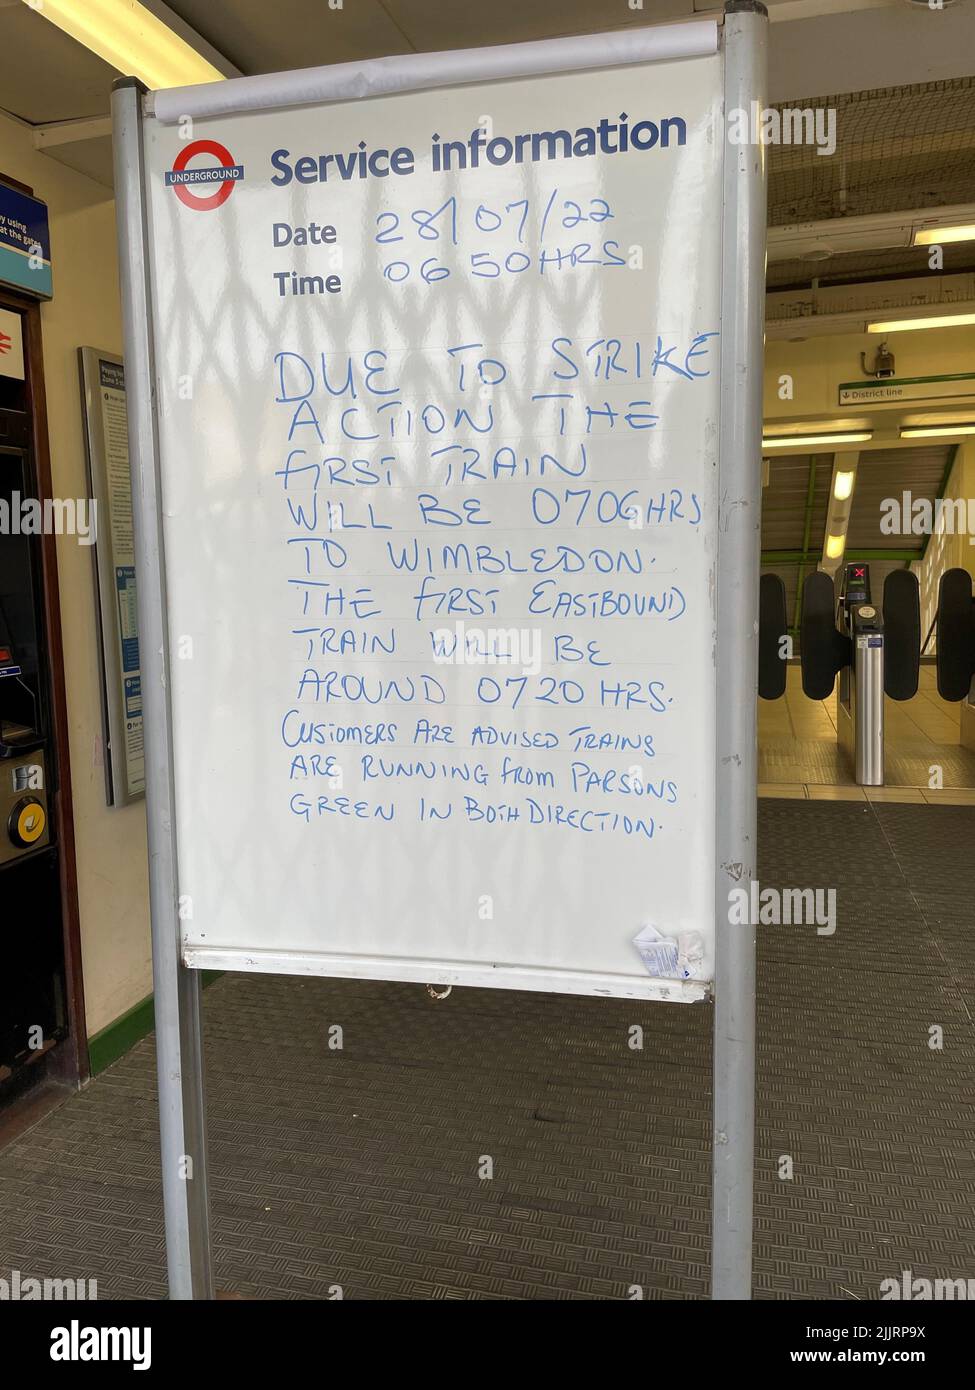 UNDERGROUND
Service information
Date 28/07/22
Time 06 50HRS
DUE TO STRIKE
ACTION THE
FIRST TRAIN
WILL BE 0706HRS
TO WIMBLEDON.
THE FIRST EASTBOUND
TRAIN WILL BE
AROUND 0720 HRS.
CUSTOMERS ARE ADVISED TRAINS
ARE RUNNING FROM PARSONS
GREEN IN BOTH DIRECTION.
District line
y using
at the gates
alamy
Image ID: 2JJRP9X
www.alamy.com